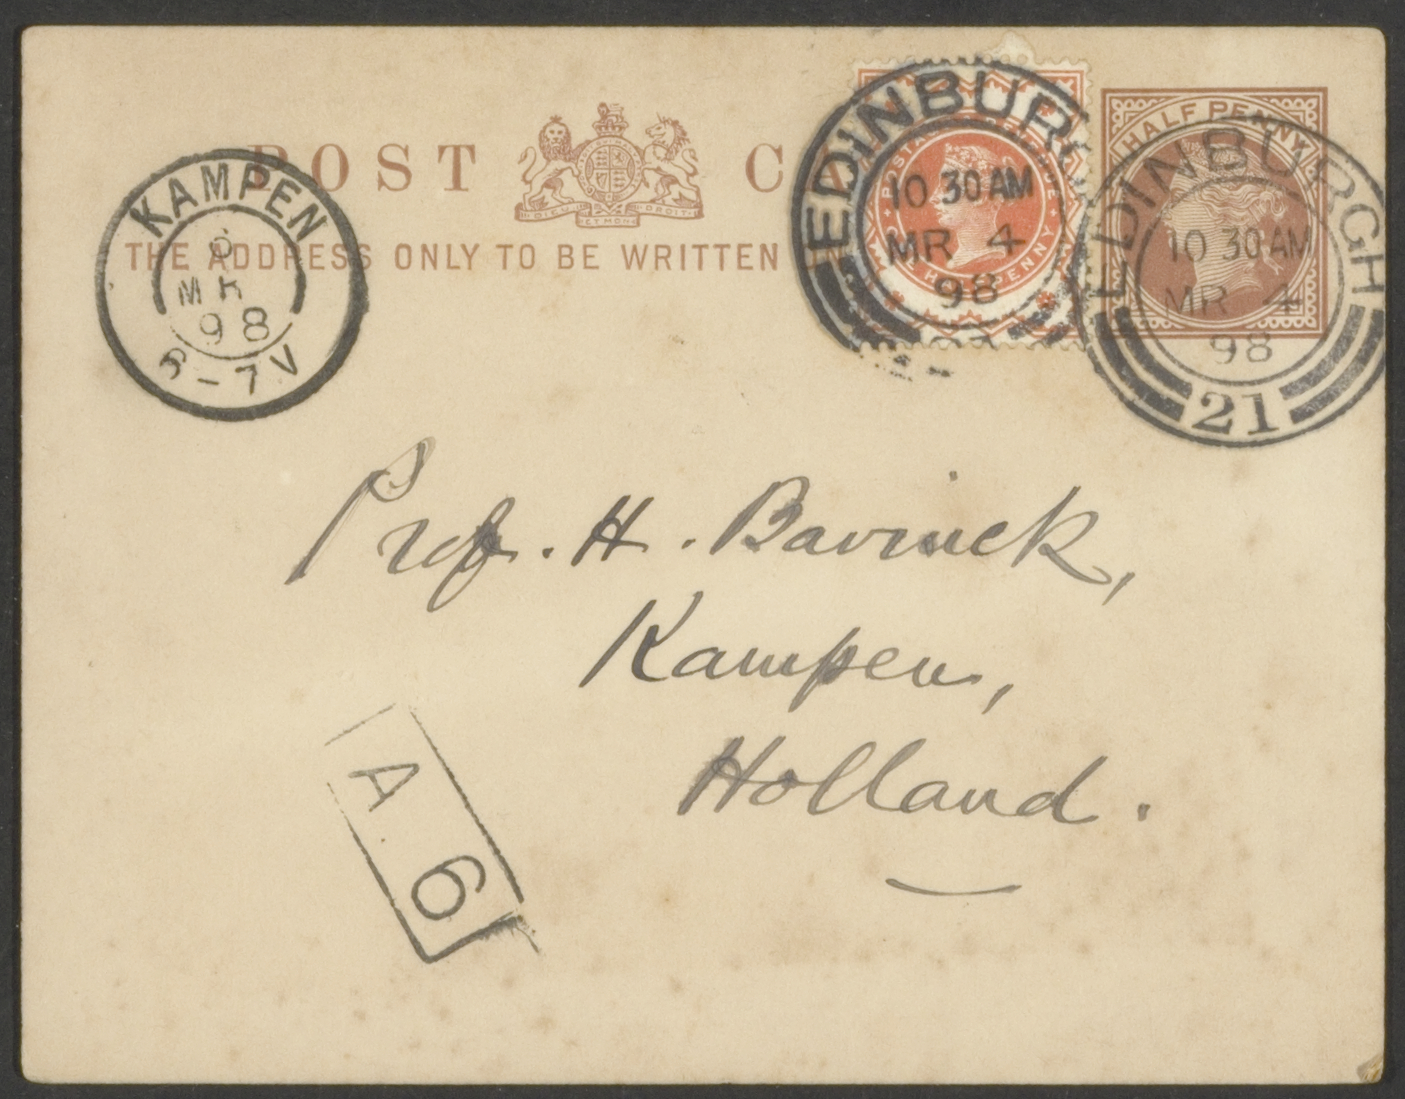 POST C
THE ADDRESS ONLY TO BE WRITTEN
KAMPEN
MR
98
6-7V
EDINBURGH
10 30 AM
MR 4
98
HALF PENNY
EDINBURGH
10 30 AM
MR 4
98
21
Prof. H. Bavinck,
Kampen,
Holland.
A.6